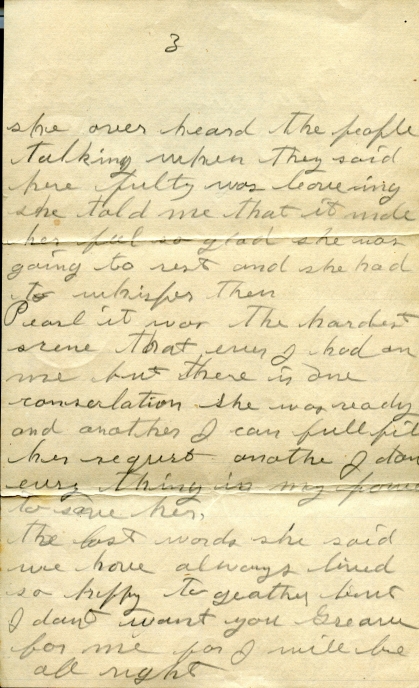 3
she over heard the people
talking when they said
here fulty was leaveing
she told me that it made
her feel so glad she was
going to rest and she had
to whisper then
Pearl it was the hardest
scene that ever I had on
me but there is one
conserlation she was ready
and another I can fullfill
her request anothe I don
every thing in my power
to save her,
the last words she said
we have always lived
so hppy to geather but
I dant want you Greave
for me for I will be
all right